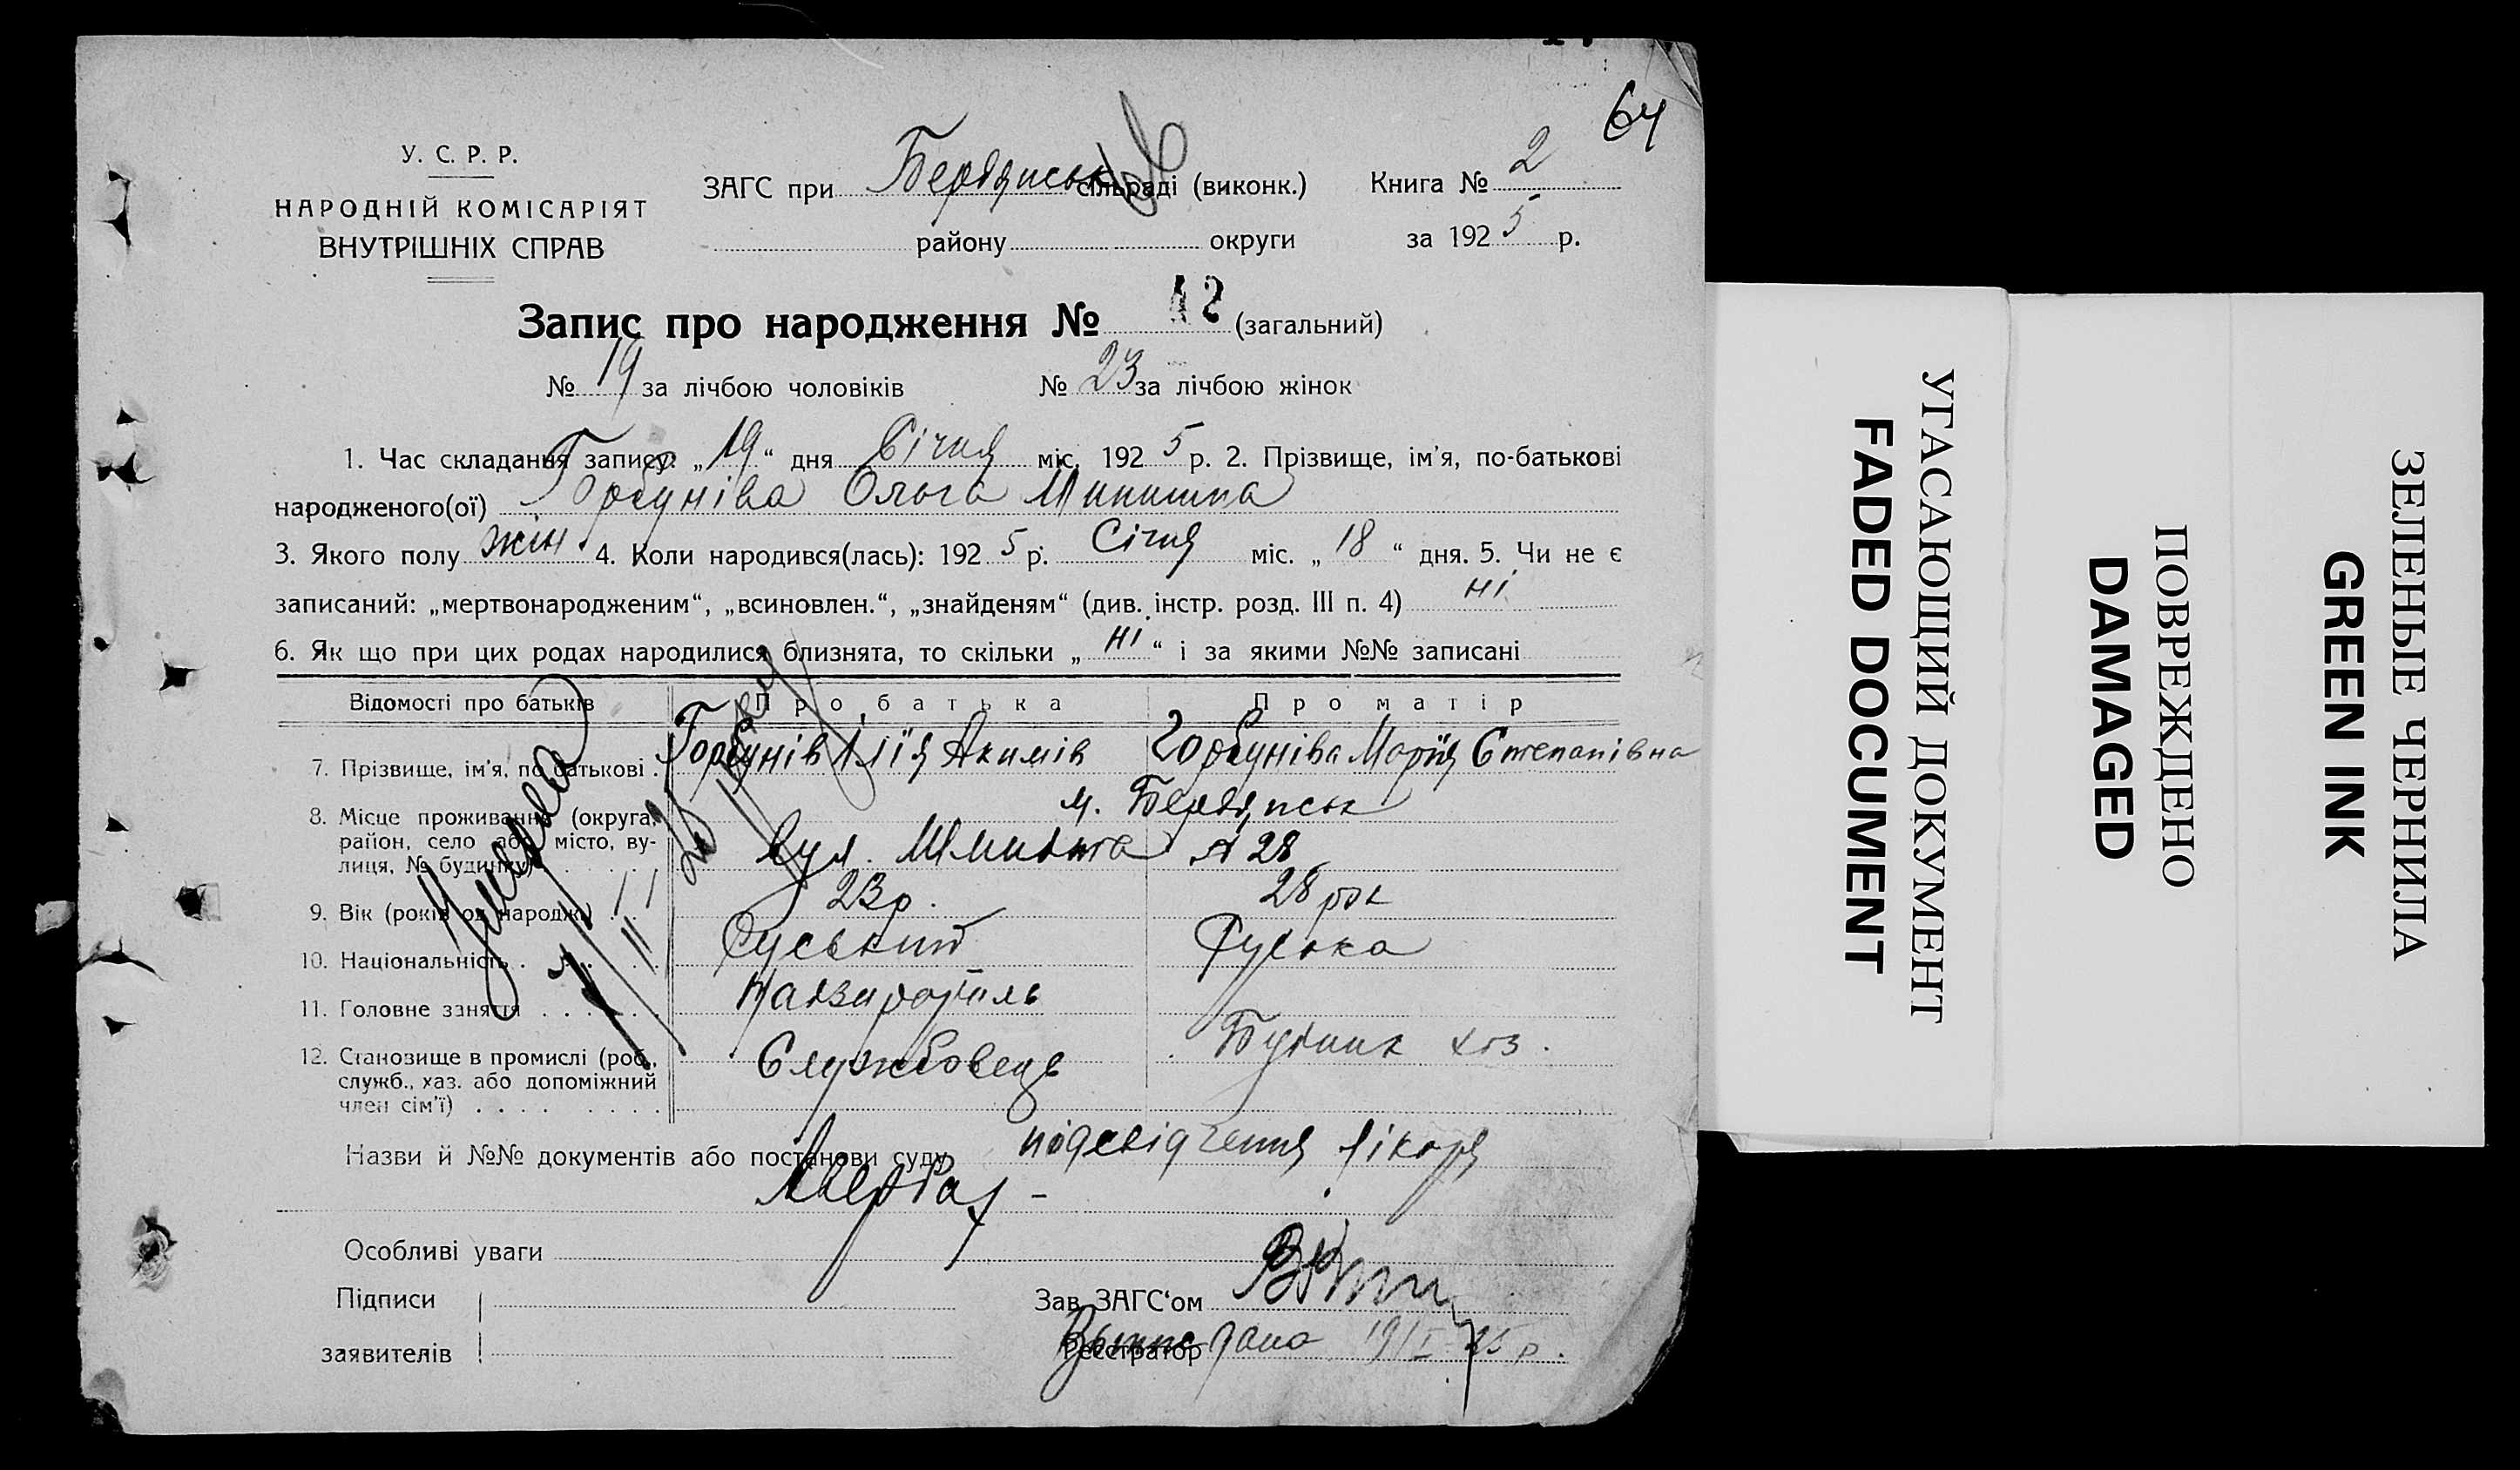 64
У. С. Р. Р.
НАРОДНІЙ КОМІСАРІЯТ
ВНУТРІШНІХ СПРАВ
ЗАГС при Бердянськ сільраді (виконк.) Книга № 2
району округи за 1925 р.
Запис про народження № 42 (загальний)
№ 19 за лічбою чоловіків № 23 за лічбою жінок
1. Час складання запису: „19“ дня Січня міс. 1925 р. 2. Прізвище, ім'я, по-батькові
народженого(ої) Горбуніва Ольга
3. Якого полу жін. 4. Коли народився(лась): 1925 р. Січня міс. „18“ дня. 5. Чи не є
записаний: „мертвонародженим“, „всиновлен.“, „знайденям“ (див. інстр. розд. III п. 4) ні
6. Як що при цих родах народилися близнята, то скільки „ні“ і за якими №№ записані
Відомості про батьків Про батька Про матір
7. Прізвище, ім'я, по батькові . Горбунів Ілія Акимів Горбуніва Марія Степанівна
8. Місце проживання (округа, м. Бердянськ
район, село або місто, ву-
лиця, № будинку) вул. Шмидта № 28
9. Вік (років од народж.) 23 р. 28 рок
10. Національність Руський Руська
11. Головне заняття
12. Становище в промислі (роб., Службовець хоз.
служб., хаз. або допоміжний
член сім'ї)
Умерла
Назви й №№ документів або постанови суду підсвідчення лікаря
Особливі уваги
Підписи Зав. ЗАГС'ом
заявителів Реєстратор дана 19/I 25 р.
УГАСАЮЩИЙ ДОКУМЕНТ
FADED DOCUMENT
ПОВРЕЖДЕНО
DAMAGED
ЗЕЛЕНЫЕ ЧЕРНИЛА
GREEN INK